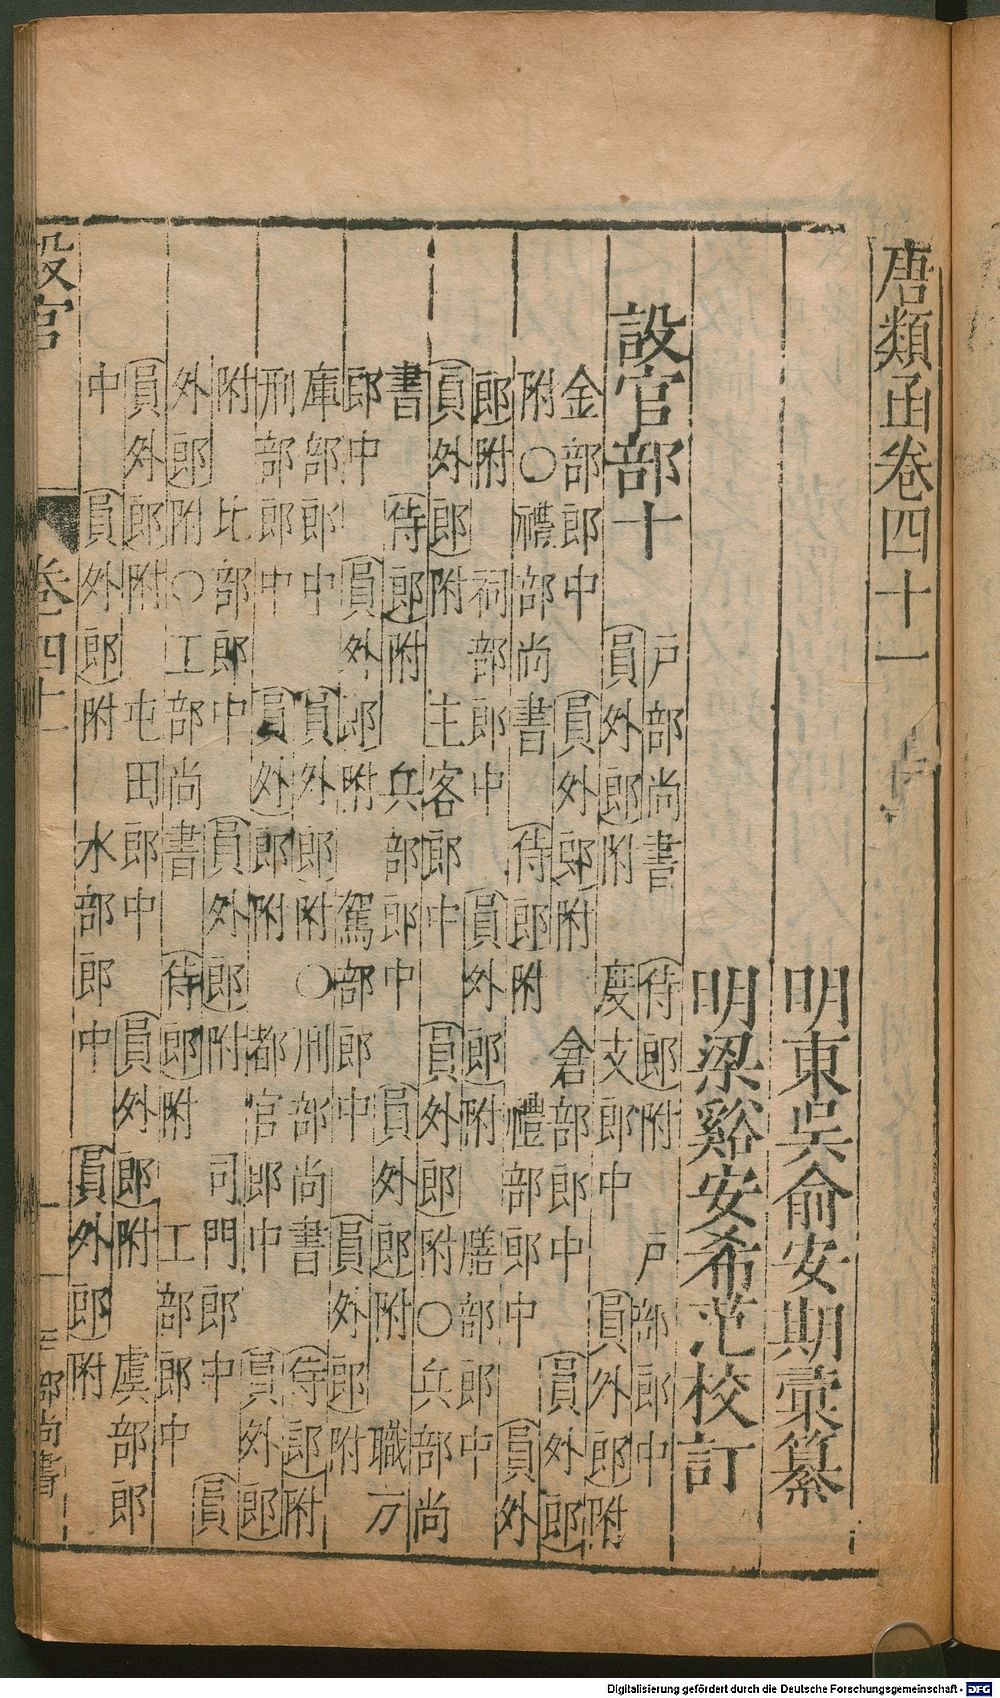 唐類函卷四十一
明東吳俞安期彙纂
明梁谿安希范校訂
設官部十
戶部尚書 侍郎附 戶部郎中
員外郎附 慶支郎中 員外郎附
金部郎中 員外郎附 倉部郎中 員外郎
附○禮部尚書 侍郎附 禮部郎中 員外
郎附 祠部郎中 員外郎附 膳部郎中
員外郎附 主客郎中 員外郎附○兵部尚
書 侍郎附 兵部郎中 員外郎附 職方
郎中 員外郎附 駕部郎中 員外郎附
庫部郎中 員外郎附○刑部尚書 侍郎附
刑部郎中 員外郎附 都官郎中 員外郎
附 比部郎中 員外郎附 司門郎中 員
外郎附○工部尚書 侍郎附 工部郎中
員外郎附 屯田郎中 員外郎附 虞部郎
中 員外郎附 水部郎中 員外郎附
設官 卷四十一 一 部尚書
Digitalisierung gefördert durch die Deutsche Forschungsgemeinschaft - DFG